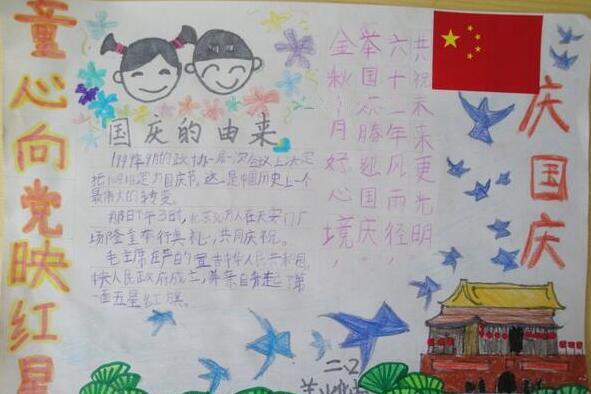 童心向党映红星
国庆的由来
1949年9月的政协一届一次会议上决定
把10月1日定为国庆节,这一是中国历史上一个
最伟大的转变。
那日下午3时,北京30万人在天安门广
场隆重举行典礼,共同庆祝。
毛主席在的宣告中华人民共和国,
中央人民政府成立,并亲自升起了第
一面五星红旗。
金秋十月好心境,
举国欢腾迎国庆,
六十二年风雨径,
共祝未来更光明.
庆国庆
二.2